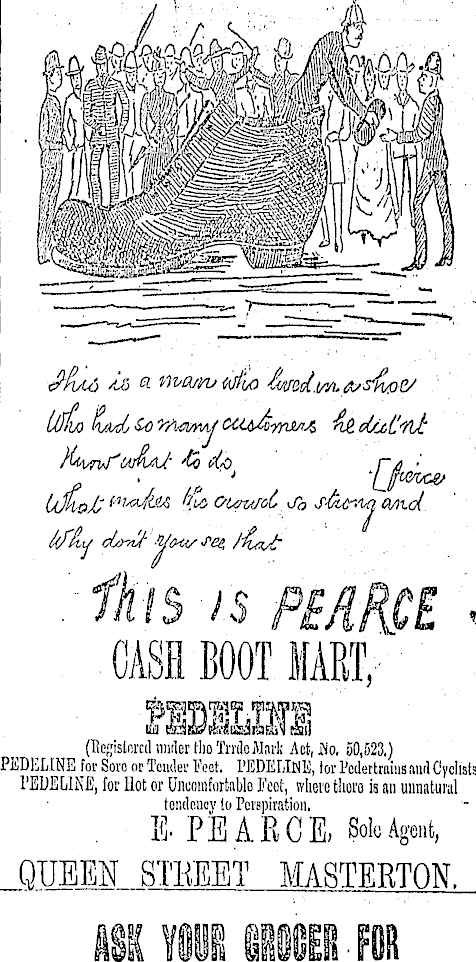 This is a man who lived in a shoe
Who had so many customers he did'nt
Know what to do,
[fierce
What makes the crowd so strong and
Why don't you see that
THIS IS PEARCE
CASH BOOT MART,
PEDELINE
(Registered under the Trrde Mark Act, No. 50,523.)
PEDELINE for Sore or Tender Feet. PEDELINE, for Pedertrains and Cyclists
PEDELINE, for Hot or Uncomfortable Feet, where there is an unnatural
tendency to Perspiration.
E. PEARCE, Sole Agent,
QUEEN STREET MASTERTON.
ASK YOUR GROCER FOR